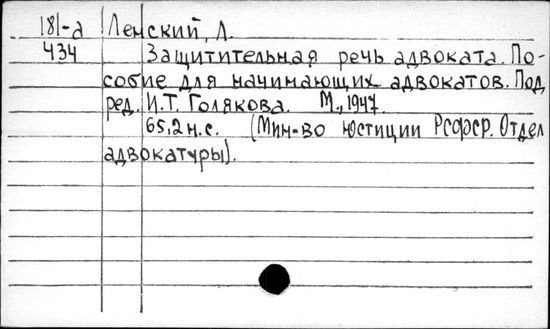 181-а Ленский, Л.
434 Защитительная речь адвоката. По-
собие для начинающих адвокатов. Под
ред. И.Т. Голякова. М., 1947.
65,2 н.с. (Мин-во юстиции РСФСР. Отдел
адвокатуры).